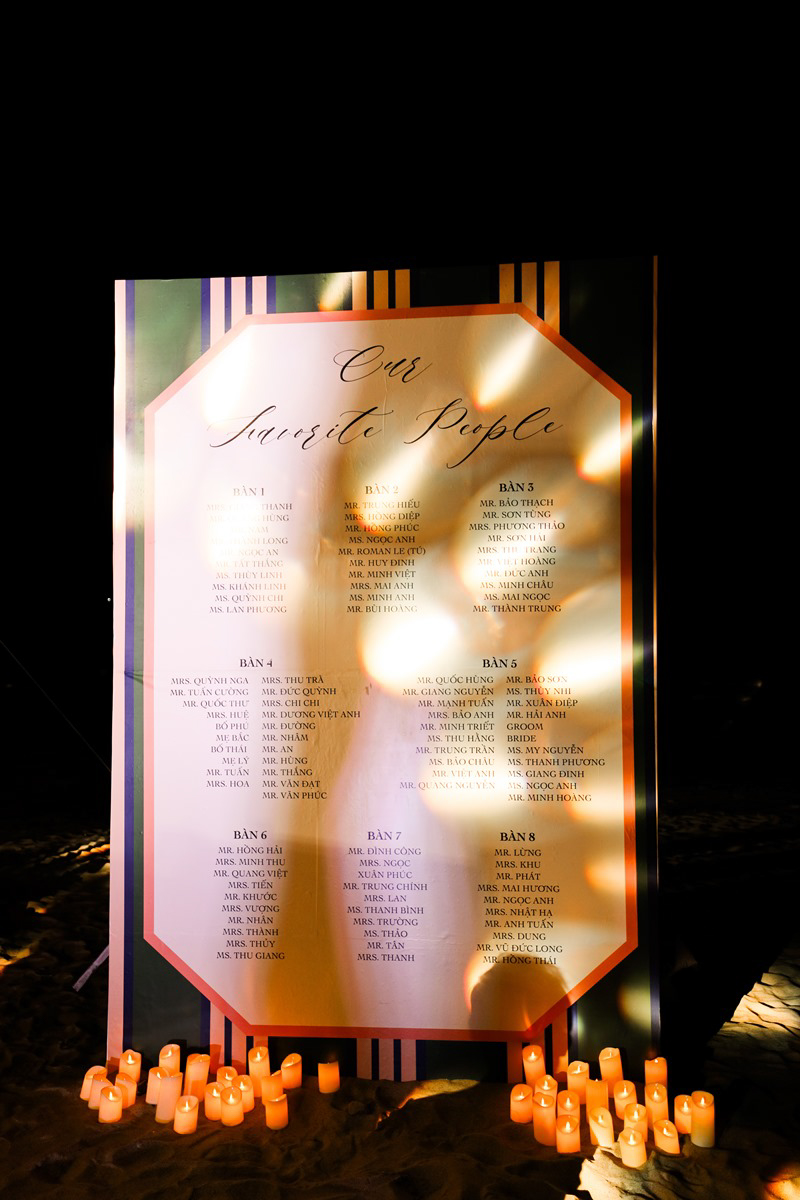 Our
Favorite People
BÀN 1
THANH
HÙNG
LONG
NGỌC AN
TẤT THẮNG
MS. THÙY LINH
MS. KHÁNH LINH
MS. QUỲNH CHI
MS. LAN PHƯƠNG
BÀN 2
MR. TRUNG HIẾU
MRS. HỒNG DIỆP
MR. HỒNG PHÚC
MS. NGỌC ANH
MR. ROMAN LE (TÚ)
MR. HUY ĐINH
MR. MINH VIỆT
MRS. MAI ANH
MS. MINH ANH
MR. BÙI HOÀNG
BÀN 3
MR. BẢO THẠCH
MR. SƠN TÙNG
MRS. PHƯƠNG THẢO
MR. SƠN HẢI
MRS. THU TRANG
MR. VIỆT HOÀNG
MR. ĐỨC ANH
MS. MINH CHÂU
MS. MAI NGỌC
MR. THÀNH TRUNG
BÀN 4
MRS. QUỲNH NGA
MR. TUẤN CƯỜNG
MR. QUỐC THƯ
MRS. HUỆ
BỐ PHÚ
MẸ BẮC
BỐ THÁI
MẸ LÝ
MR. TUẤN
MRS. HOA
MRS. THU TRÀ
MR. ĐỨC QUỲNH
MRS. CHI CHI
MR. DƯƠNG VIỆT ANH
MR. ĐƯỜNG
MR. NHÂM
MR. AN
MR. HÙNG
MR. THẮNG
MR. VĂN ĐẠT
MR. VĂN PHÚC
BÀN 5
MR. QUỐC HÙNG
MR. GIANG NGUYỄN
MR. MẠNH TUẤN
MRS. BẢO ANH
MR. MINH TRIẾT
MS. THU HẰNG
MR. TRUNG TRẦN
MS. BẢO CHÂU
MR. VIỆT ANH
MR. QUANG NGUYỄN
MR. BẢO SƠN
MS. THÙY NHI
MR. XUÂN ĐIỆP
MR. HẢI ANH
GROOM
BRIDE
MS. MY NGUYỄN
MS. THANH PHƯƠNG
MS. GIANG ĐINH
MS. NGỌC ANH
MR. MINH HOÀNG
BÀN 6
MR. HỒNG HẢI
MRS. MINH THU
MR. QUANG VIỆT
MRS. TIẾN
MR. KHƯỚC
MRS. VƯỢNG
MR. NHÂN
MRS. THÀNH
MRS. THỦY
MS. THU GIANG
BÀN 7
MR. ĐÌNH CÔNG
MRS. NGỌC
XUÂN PHÚC
MR. TRUNG CHÍNH
MRS. LAN
MS. THANH BÌNH
MRS. TRƯỜNG
MS. THẢO
MR. TÂN
MRS. THANH
BÀN 8
MR. LỪNG
MRS. KHU
MR. PHÁT
MRS. MAI HƯƠNG
MR. NGỌC ANH
MRS. NHẬT HẠ
MR. ANH TUẤN
MRS. DUNG
MR. VŨ ĐỨC LONG
MR. HỒNG THÁI